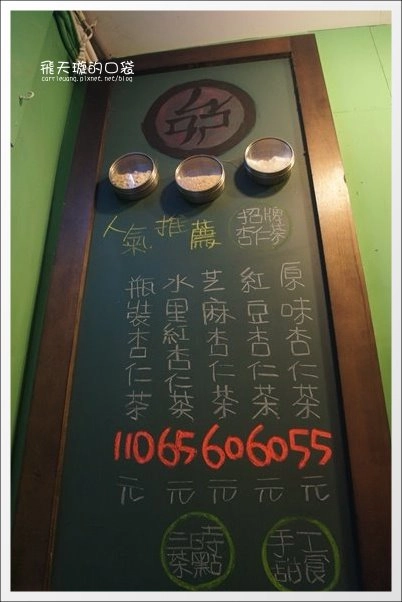 飛天璇的口袋
carrieuang.pixnet.net/blog
人氣推薦
招牌
杏仁茶
原味杏仁茶
55元
紅豆杏仁茶
60元
芝麻杏仁茶
60元
水里紅杏仁茶
65元
瓶裝杏仁茶
110元
手工
甜食
三時
茶點